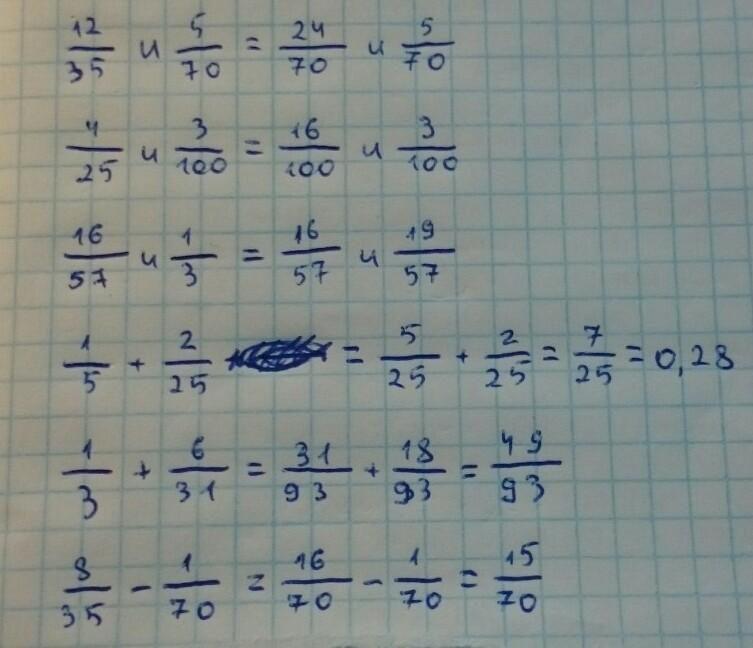 12/35 и 5/70 = 24/70 и 5/70
4/25 и 3/100 = 16/100 и 3/100
16/57 и 1/3 = 16/57 и 19/57
1/5 + 2/25 = 5/25 + 2/25 = 7/25 = 0,28
1/3 + 6/31 = 31/93 + 18/93 = 49/93
8/35 - 1/70 = 16/70 - 1/70 = 15/70